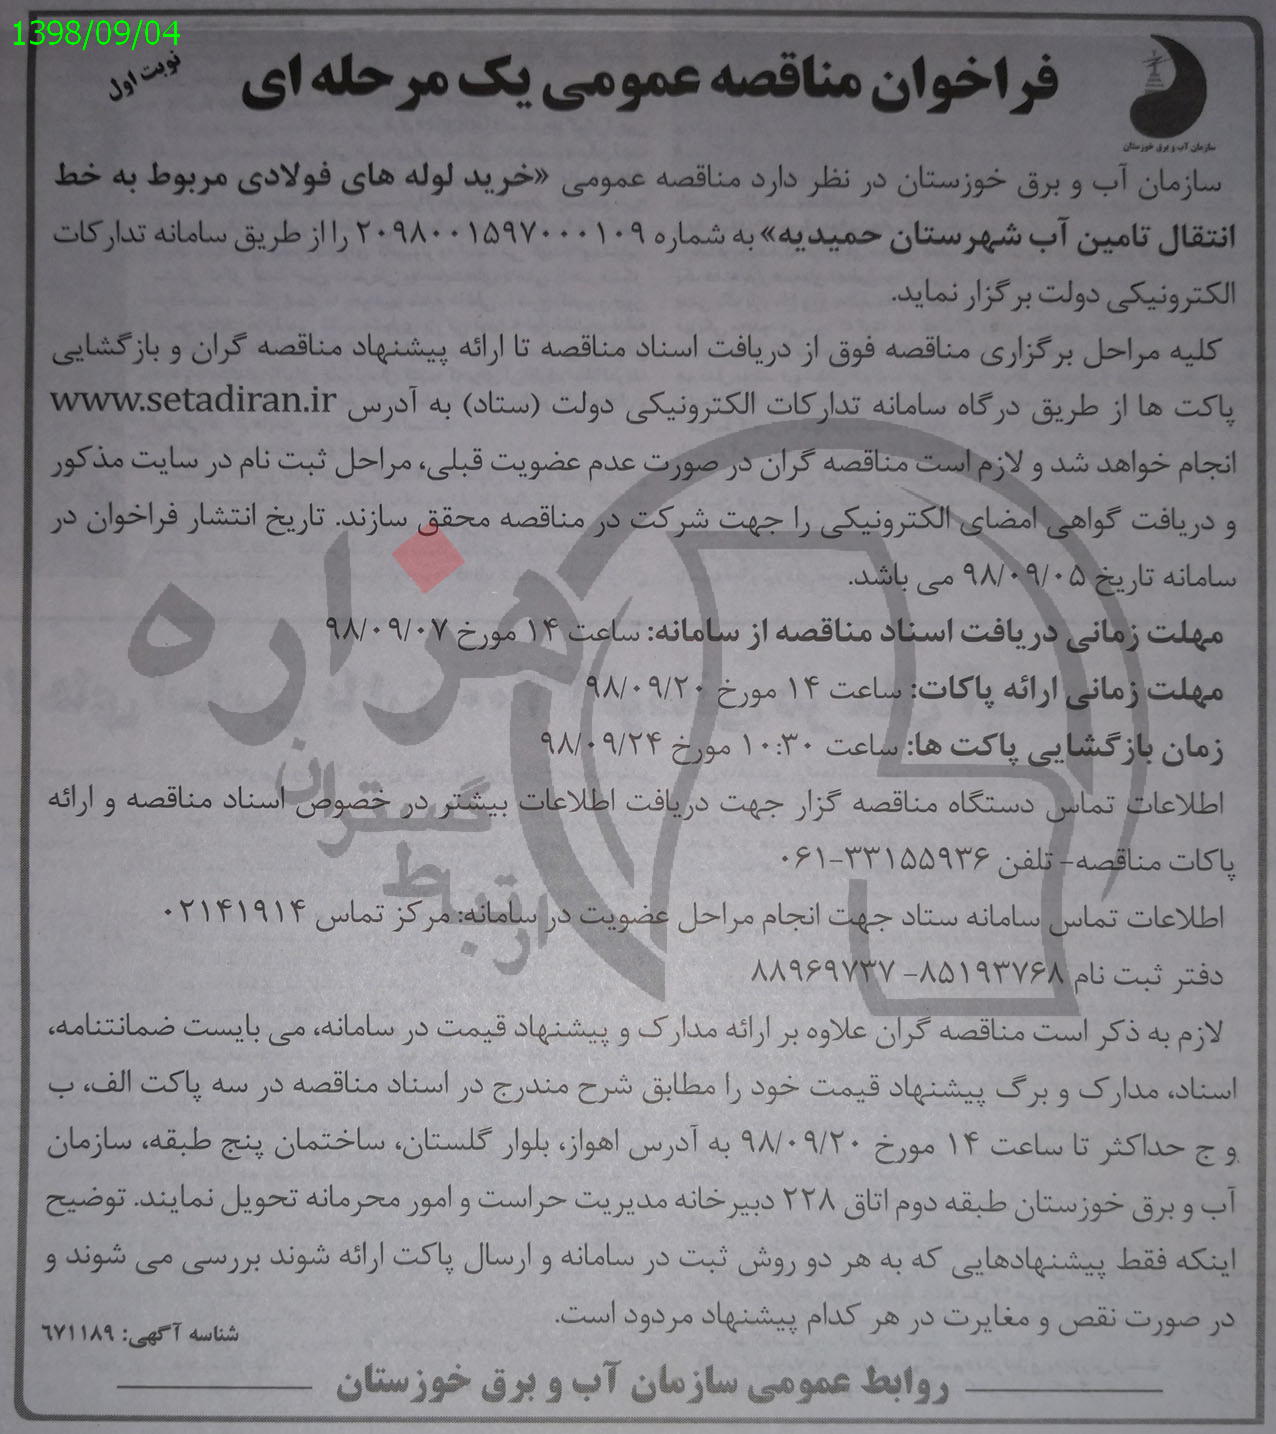 1398/09/04
سازمان آب و برق خوزستان
فراخوان مناقصه عمومی یک مرحله ای
نوبت اول
سازمان آب و برق خوزستان در نظر دارد مناقصه عمومی «خرید لوله های فولادی مربوط به خط
انتقال تامین آب شهرستان حمیدیه» به شماره ۲۰۹۸۰۰۱۵۹۷۰۰۰۱۰۹ را از طریق سامانه تدارکات
الکترونیکی دولت برگزار نماید.
کلیه مراحل برگزاری مناقصه فوق از دریافت اسناد مناقصه تا ارائه پیشنهاد مناقصه گران و بازگشایی
پاکت ها از طریق درگاه سامانه تدارکات الکترونیکی دولت (ستاد) به آدرس www.setadiran.ir
انجام خواهد شد و لازم است مناقصه گران در صورت عدم عضویت قبلی، مراحل ثبت نام در سایت مذکور
و دریافت گواهی امضای الکترونیکی را جهت شرکت در مناقصه محقق سازند. تاریخ انتشار فراخوان در
سامانه تاریخ ۹۸/۰۹/۰۵ می باشد.
مهلت زمانی دریافت اسناد مناقصه از سامانه: ساعت ۱۴ مورخ ۹۸/۰۹/۰۷
مهلت زمانی ارائه پاکات: ساعت ۱۴ مورخ ۹۸/۰۹/۲۰
زمان بازگشایی پاکت ها: ساعت ۱۰:۳۰ مورخ ۹۸/۰۹/۲۴
اطلاعات تماس دستگاه مناقصه گزار جهت دریافت اطلاعات بیشتر در خصوص اسناد مناقصه و ارائه
پاکات مناقصه- تلفن ۳۳۱۵۵۹۳۶-۰۶۱
اطلاعات تماس سامانه ستاد جهت انجام مراحل عضویت در سامانه: مرکز تماس ۰۲۱۴۱۹۱۴
دفتر ثبت نام ۸۵۱۹۳۷۶۸- ۸۸۹۶۹۷۳۷
لازم به ذکر است مناقصه گران علاوه بر ارائه مدارک و پیشنهاد قیمت در سامانه، می بایست ضمانتنامه،
اسناد، مدارک و برگ پیشنهاد قیمت خود را مطابق شرح مندرج در اسناد مناقصه در سه پاکت الف، ب
و ج حداکثر تا ساعت ۱۴ مورخ ۹۸/۰۹/۲۰ به آدرس اهواز، بلوار گلستان، ساختمان پنج طبقه، سازمان
آب و برق خوزستان طبقه دوم اتاق ۲۲۸ دبیرخانه مدیریت حراست و امور محرمانه تحویل نمایند. توضیح
اینکه فقط پیشنهادهایی که به هر دو روش ثبت در سامانه و ارسال پاکت ارائه شوند بررسی می شوند و
در صورت نقص و مغایرت در هر کدام پیشنهاد مردود است.
شناسه آگهی: ۶۷۱۱۸۹
روابط عمومی سازمان آب و برق خوزستان
هزاره
گستران
ارتباط